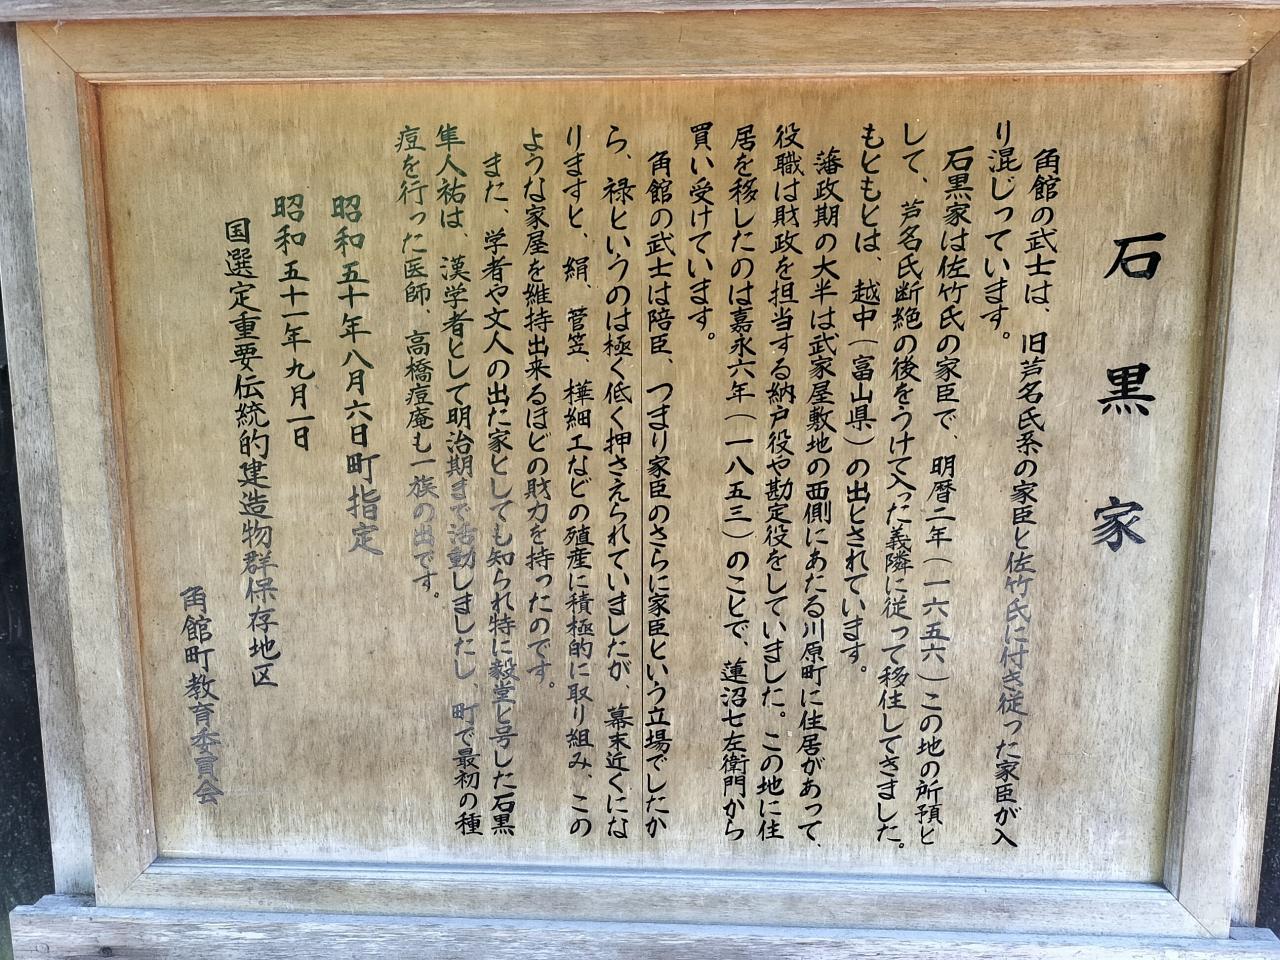 石黒家
角館の武士は、旧芦名氏系の家臣と佐竹氏に付き従った家臣が入
り混じっています。
石黒家は佐竹氏の家臣で、明暦二年(一六五六)この地の所預と
して、芦名氏断絶の後をうけて入った義隣に従って移住してきました。
もともとは、越中(富山県)の出とされています。
藩政期の大半は武家屋敷地の西側にあたる川原町に住居があって、
役職は財政を担当する納戸役や勘定役をしていました。この地に住
居を移したのは嘉永六年(一八五三)のことで、蓮沼七左衛門から
買い受けています。
角館の武士は陪臣、つまり家臣のさらに家臣という立場でしたか
ら、禄というのは極く低く押さえられていましたが、幕末近くにな
りますと、絹、菅笠、樺細工などの殖産に積極的に取り組み、この
ような家屋を維持出来るほどの財力を持ったのです。
また、学者や文人の出た家としても知られ特に毅堂と号した石黒
隼人祐は、漢学者として明治期まで活動しましたし、町で最初の種
痘を行った医師、高橋痘庵も一族の出です。
昭和五十年八月六日町指定
昭和五十一年九月一日
国選定重要伝統的建造物群保存地区
角館町教育委員会